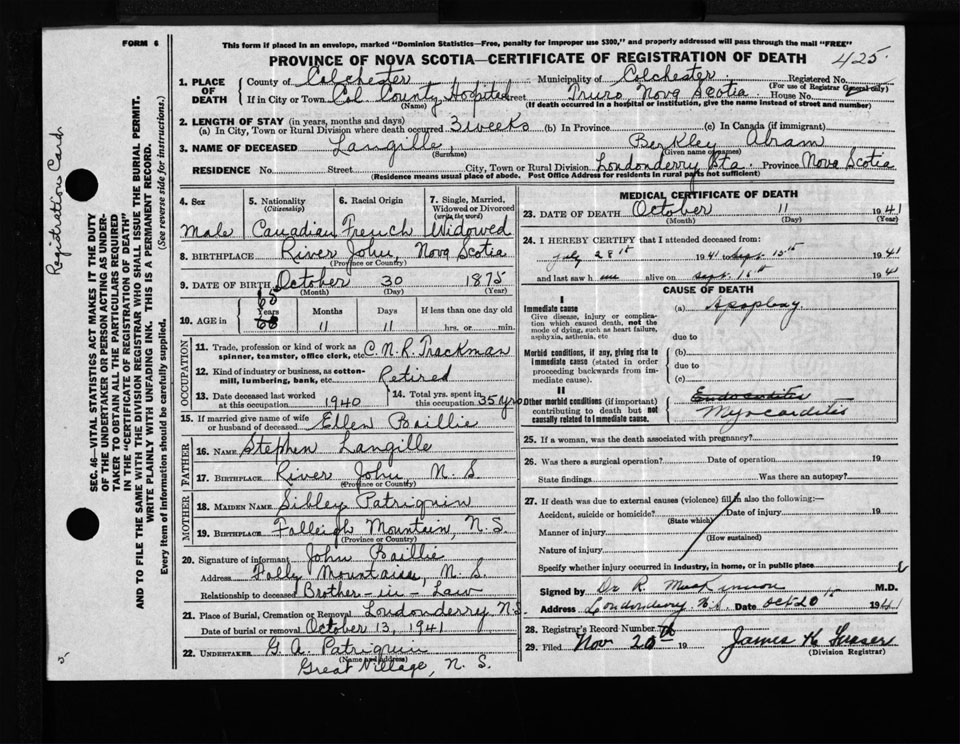 FORM 6
This form if placed in an envelope, marked "Dominion Statistics—Free, penalty for improper use $300," and properly addressed will pass through the mail "FREE"
PROVINCE OF NOVA SCOTIA—CERTIFICATE OF REGISTRATION OF DEATH
425
1. PLACE OF DEATH
County of Colchester Municipality of Colchester Registered No.
(For use of Registrar General only)
If in City or Town Col County Hospital Street Truro Nova Scotia House No.
(Name) (If death occurred in a hospital or institution, give the name instead of street and number)
2. LENGTH OF STAY (in years, months and days)
(a) In City, Town or Rural Division where death occurred 3 weeks (b) In Province (c) In Canada (if immigrant)
3. NAME OF DECEASED Langille, Berkley Abram
(Surname) (Given name or names)
RESIDENCE No. Street City, Town or Rural Division Londonderry Sta. Province Nova Scotia
(Residence means usual place of abode. Post Office Address for residents in rural parts not sufficient)
4. Sex Male
5. Nationality (Citizenship) Canadian
6. Racial Origin French
7. Single, Married, Widowed or Divorced (write the word) Widowed
8. BIRTHPLACE River John, Nova Scotia
(Province or Country)
9. DATE OF BIRTH October 30 1875
(Month) (Day) (Year)
10. AGE in 65 Years 68 Months 11 Days 11 If less than one day old hrs. or min.
OCCUPATION
11. Trade, profession or kind of work as spinner, teamster, office clerk, etc. C.N.R. Trackman
12. Kind of industry or business, as cotton-mill, lumbering, bank, etc. Retired
13. Date deceased last worked at this occupation 1940
14. Total yrs. spent in this occupation 35 yrs
15. If married give name of wife or husband of deceased Ellen Baillie
FATHER
16. NAME Stephen Langille
17. BIRTHPLACE River John N. S.
(Province or Country)
MOTHER
18. MAIDEN NAME Sibley Patriquin
19. BIRTHPLACE Falleigh Mountain, N. S.
(Province or Country)
20. Signature of informant John Baillie
Address Folly Mountain, N. S.
Relationship to deceased Brother-in-Law
21. Place of Burial, Cremation or Removal Londonderry N.S.
Date of burial or removal October 13, 1941
22. UNDERTAKER G. A. Patriquin
(Name and address)
Great Village, N. S.
MEDICAL CERTIFICATE OF DEATH
23. DATE OF DEATH October 11 1941
(Month) (Day) (Year)
24. I HEREBY CERTIFY that I attended deceased from:
July 28th 1941 to Sept. 15th 1941
and last saw h im alive on Sept. 15th 1941
CAUSE OF DEATH
I
Immediate cause (a) Apoplexy.
Give disease, injury or complication which caused death, not the mode of dying, such as heart failure, asphyxia, asthenia, etc
due to
Morbid conditions, if any, giving rise to immediate cause (stated in order proceeding backwards from immediate cause).
(b)
due to
(c)
II
Other morbid conditions (if important) contributing to death but not causally related to immediate cause.
Endocarditis
Myocarditis
25. If a woman, was the death associated with pregnancy?
26. Was there a surgical operation? Date of operation 19
State findings Was there an autopsy?
27. If death was due to external causes (violence) fill in also the following:—
Accident, suicide or homicide? Date of injury 19
(State which)
Manner of injury
(How sustained)
Nature of injury
Specify whether injury occurred in industry, in home, or in public place
Signed by Dr R. M.D.
Address Londonderry N.S. Date Oct 20th 1941
28. Registrar's Record Number
29. Filed Nov 20th 19 James K Fraser
(Division Registrar)
Registrations Card
SEC. 46—VITAL STATISTICS ACT MAKES IT THE DUTY
OF THE UNDERTAKER OR PERSON ACTING AS UNDERTAKER
TO OBTAIN ALL THE PARTICULARS REQUIRED
IN THE "CERTIFICATE OF REGISTRATION OF DEATH"
AND TO FILE THE SAME WITH THE DIVISION REGISTRAR WHO SHALL ISSUE THE BURIAL PERMIT.
WRITE PLAINLY WITH UNFADING INK. THIS IS A PERMANENT RECORD.
Every item of information should be carefully supplied. (See reverse side for instructions.)